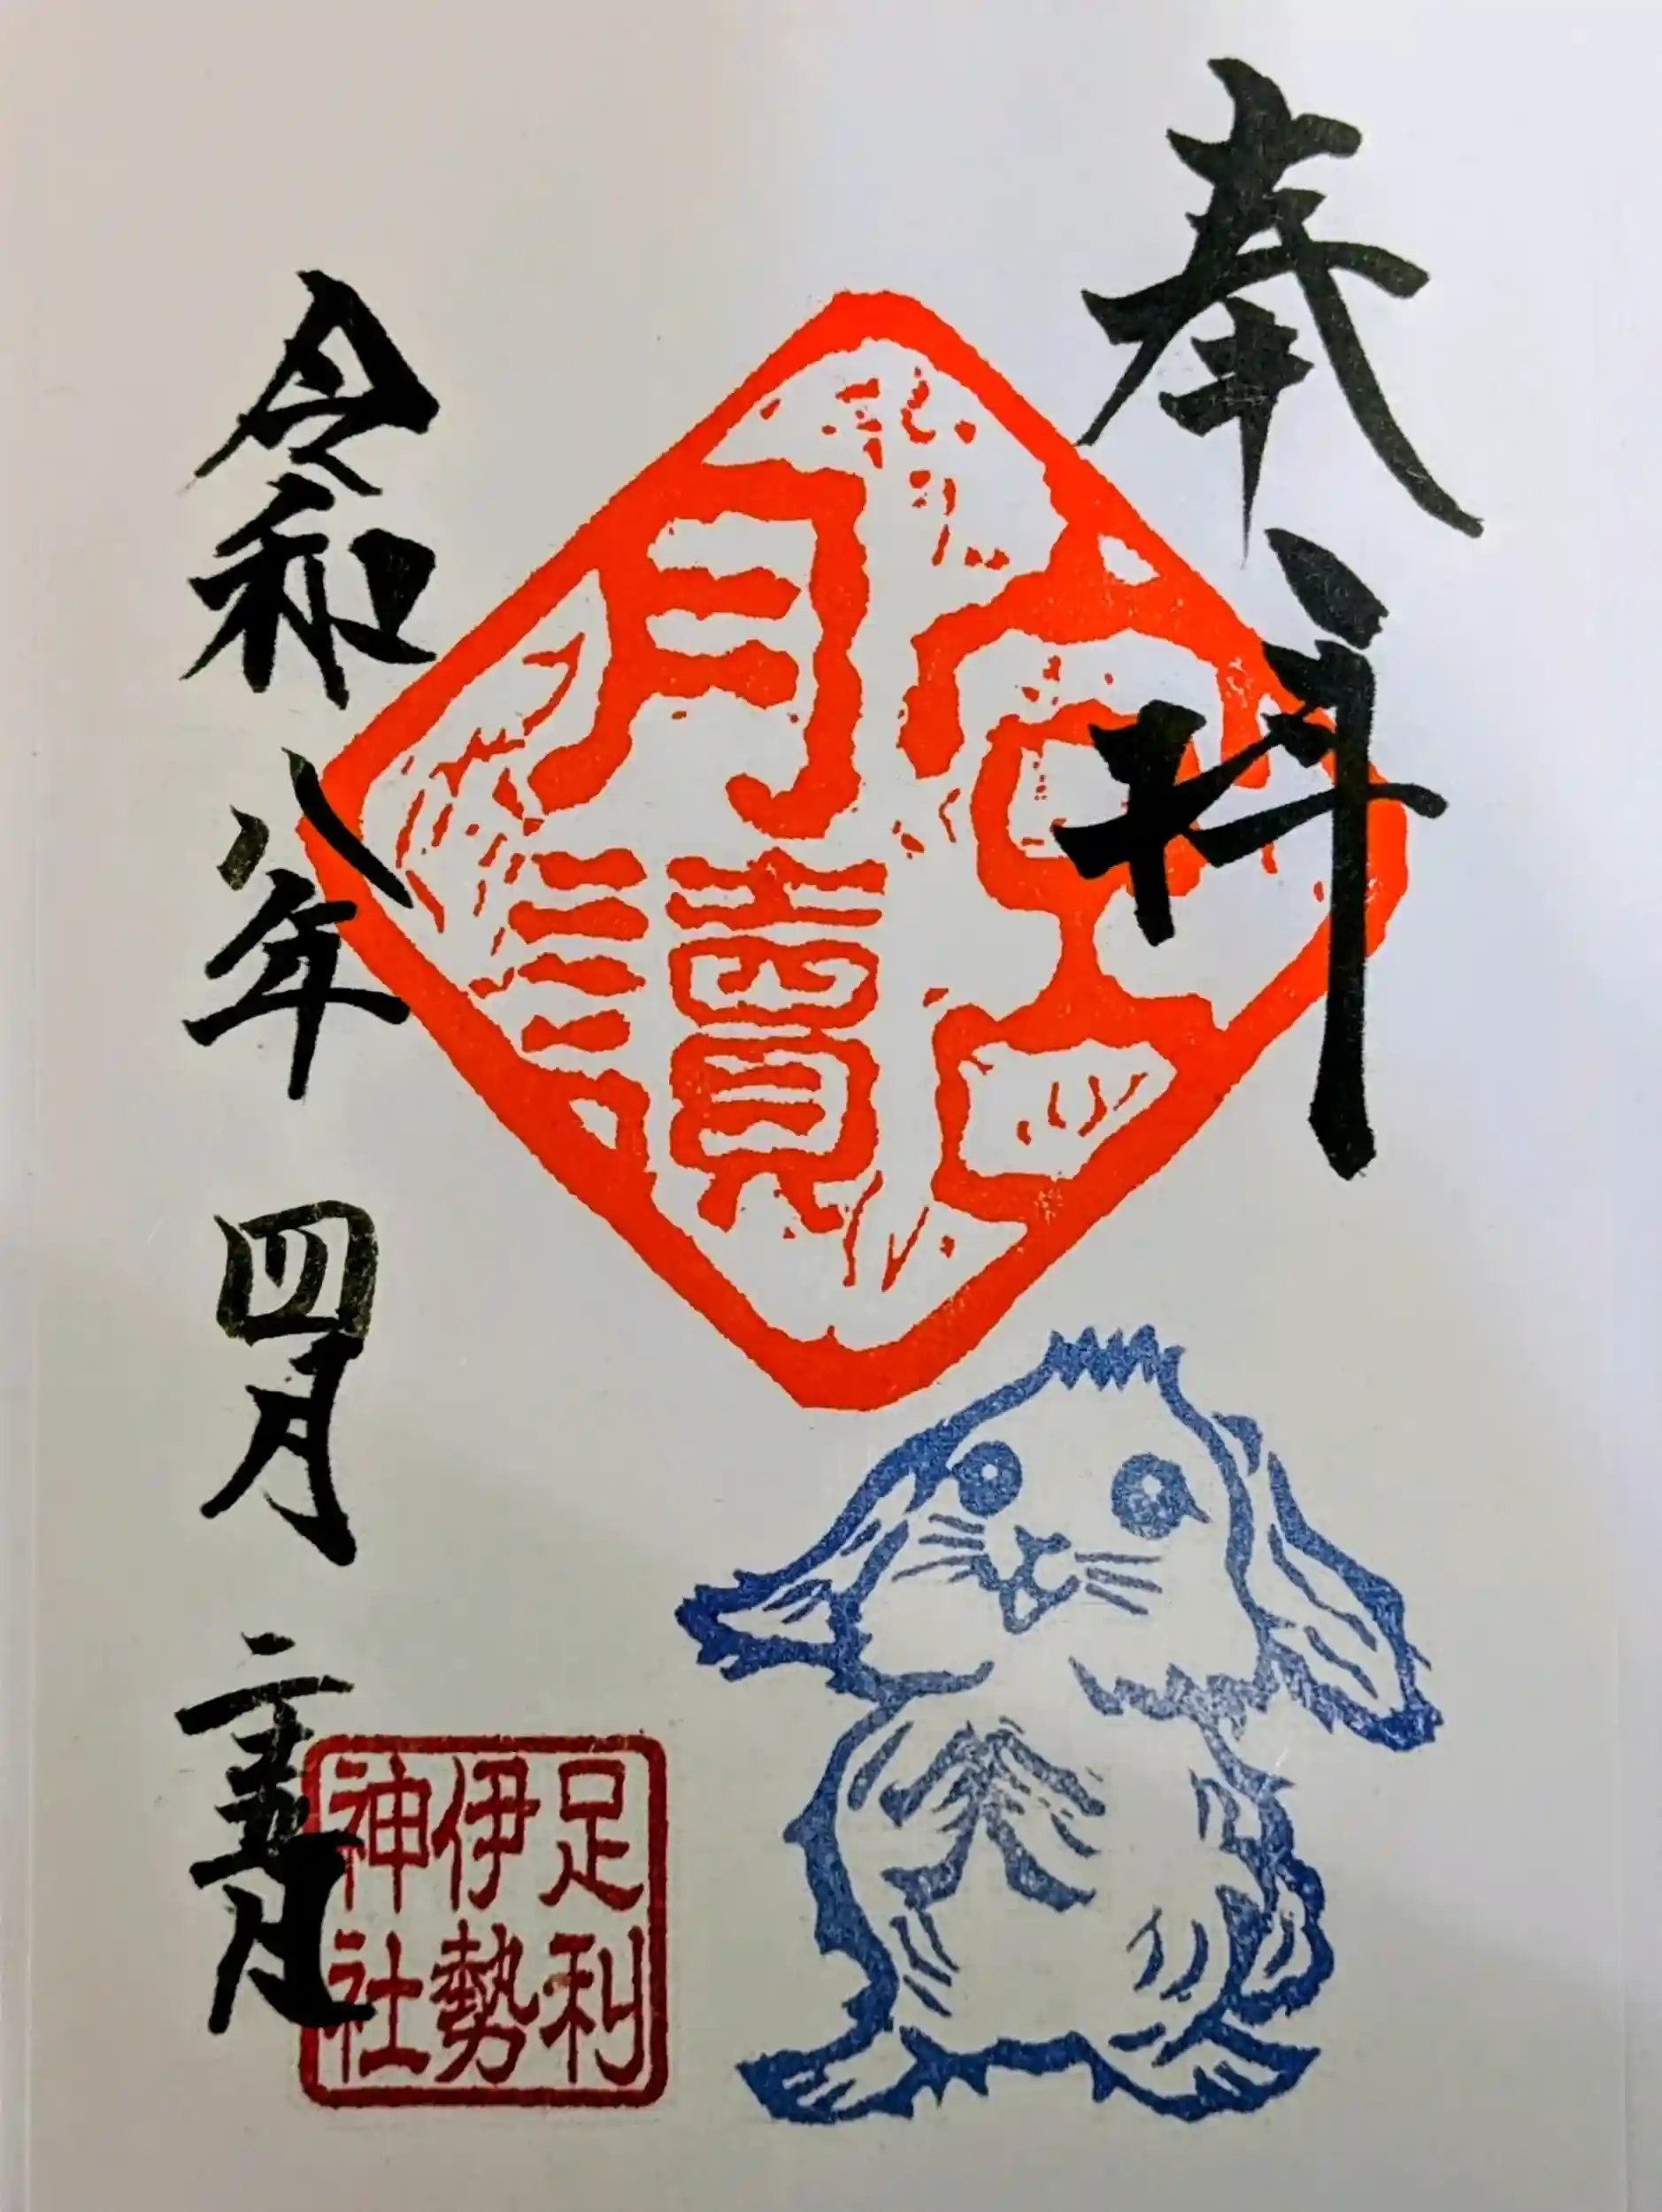 奉拝
月讀
宮
令和八年 四月 二十五日
足利
伊勢
神社